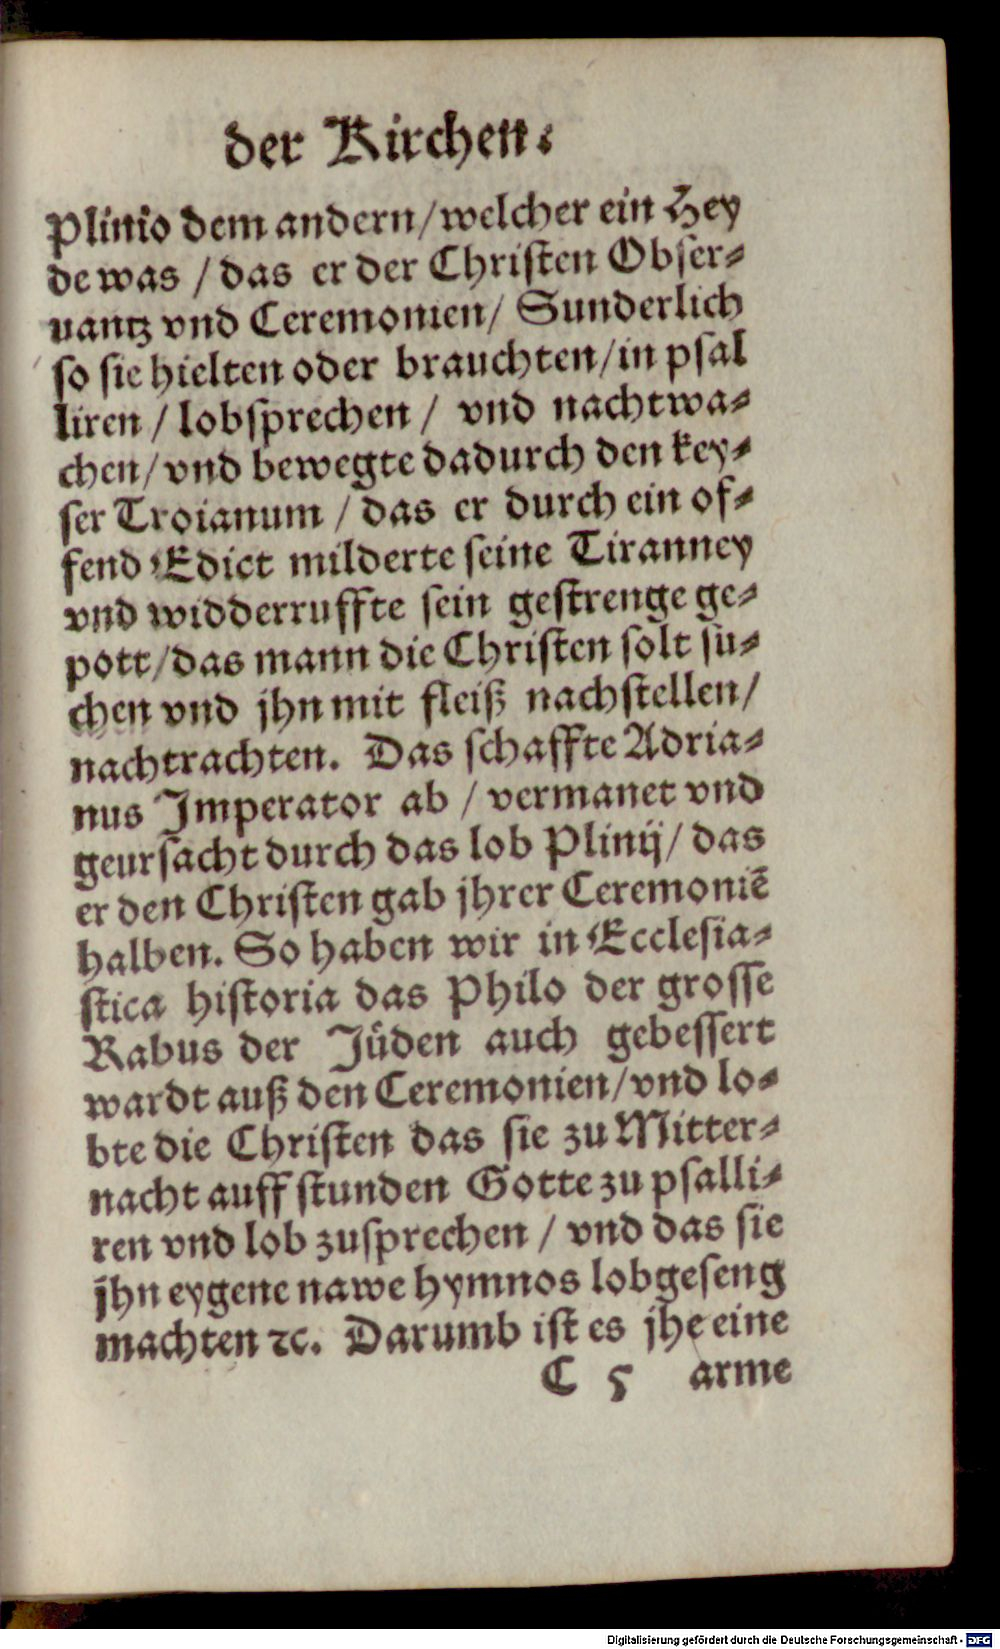 der Kirchen.
Plinio dem andern/welcher ein Hey
de was / das er der Christen Obser⸗
uantz vnd Ceremonien/ Sunderlich
so sie hielten oder brauchten/in psal
liren / lobsprechen / vnd nachtwa⸗
chen/vnd bewegte dadurch den key⸗
ser Troianum / das er durch ein of⸗
fend Edict milderte seine Tiranney
vnd widderruffte sein gestrenge ge⸗
pott/das mann die Christen solt su⸗
chen vnd jhn mit fleiß nachstellen/
nachtrachten. Das schaffte Adria⸗
nus Imperator ab / vermanet vnd
geursacht durch das lob Plinij/ das
er den Christen gab jhrer Ceremoniē
halben. So haben wir in Ecclesia⸗
stica historia das Philo der grosse
Rabus der Jüden auch gebessert
wardt auß den Ceremonien/vnd lo⸗
bte die Christen das sie zu Mitter⸗
nacht auff stunden Gotte zu psalli⸗
ren vnd lob zusprechen / vnd das sie
jhn eygene nawe hymnos lobgeseng
machten ꝛc. Darumb ist es jhe eine
C 5 arme
Digitalisierung gefördert durch die Deutsche Forschungsgemeinschaft - DFG